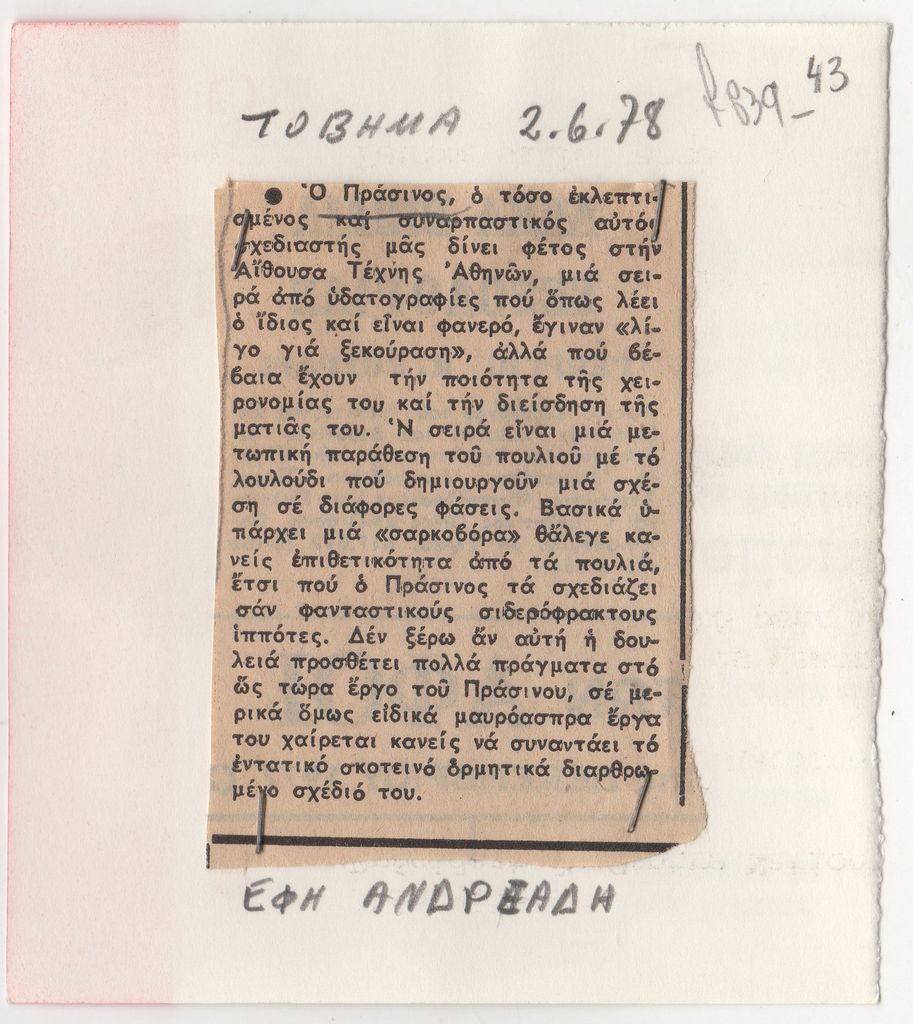 43
ΤΟ ΒΗΜΑ 2.6.78
● Ὁ Πράσινος, ὁ τόσο ἐκλεπτι-
σμένος καί συναρπαστικός αὐτός
σχεδιαστής μᾶς δίνει φέτος στήν
Αἴθουσα Τέχνης Ἀθηνῶν, μιά σει-
ρά ἀπό ὑδατογραφίες πού ὅπως λέει
ὁ ἴδιος καί εἶναι φανερό, ἔγιναν «λί-
γο γιά ξεκούραση», ἀλλά πού βέ-
βαια ἔχουν τήν ποιότητα τῆς χει-
ρονομίας του καί τήν διείσδηση τῆς
ματιᾶς του. Ἡ σειρά εἶναι μιά με-
τωπική παράθεση τοῦ πουλιοῦ μέ τό
λουλούδι πού δημιουργοῦν μιά σχέ-
ση σέ διάφορες φάσεις. Βασικά ὑ-
πάρχει μιά «σαρκοβόρα» θἄλεγε κα-
νείς ἐπιθετικότητα ἀπό τά πουλιά,
ἔτσι πού ὁ Πράσινος τά σχεδιάζει
σάν φανταστικούς σιδερόφρακτους
ἱππότες. Δέν ξέρω ἄν αὐτή ἡ δου-
λειά προσθέτει πολλά πράγματα στό
ὥς τώρα ἔργο τοῦ Πράσινου, σέ με-
ρικά ὅμως εἰδικά μαυρόασπρα ἔργα
του χαίρεται κανείς νά συναντάει τό
ἐντατικό σκοτεινό ὁρμητικά διαρθρω-
μένο σχέδιό του.
ΕΦΗ ΑΝΔΡΕΑΔΗ